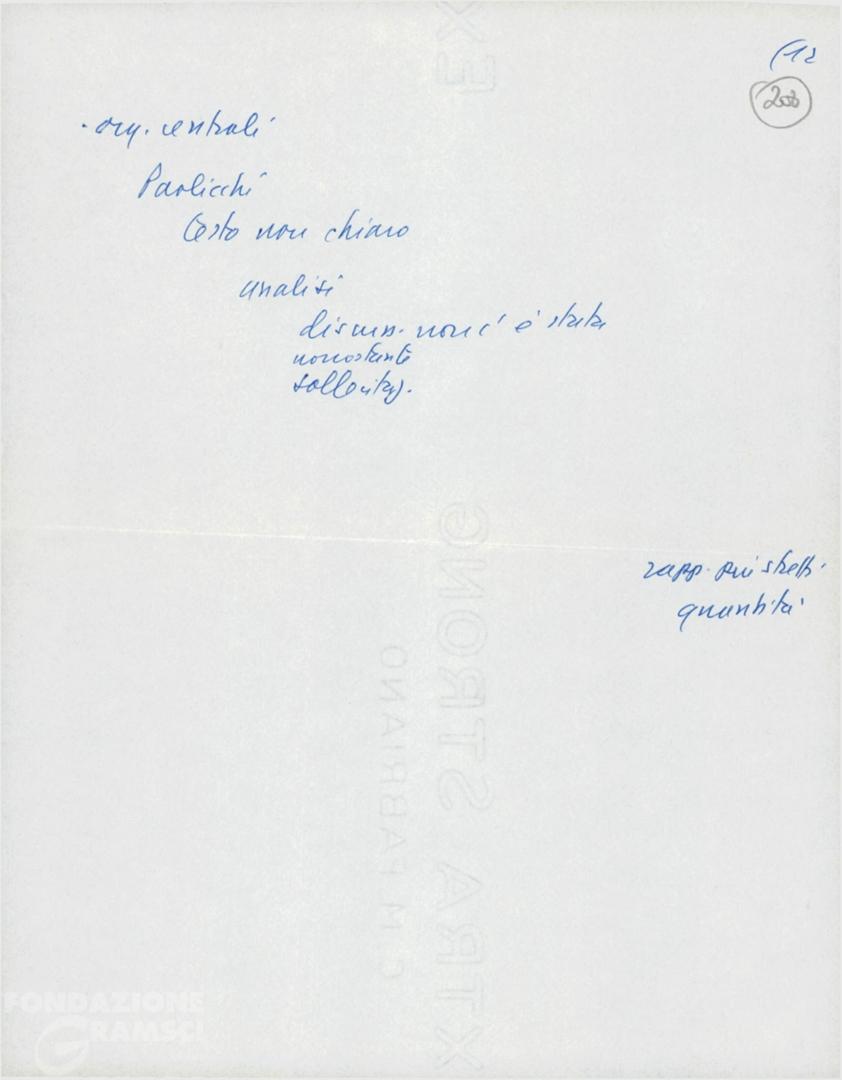 (12
206
· org. centrali
Paolicchi
Testo non chiaro
analisi
discuss. non c'è stata
nonostante
sollecitaz.
rapp. più stretti
quantità
EXTRA STRONG
C M FABRIANO
FONDAZIONE
GRAMSCI